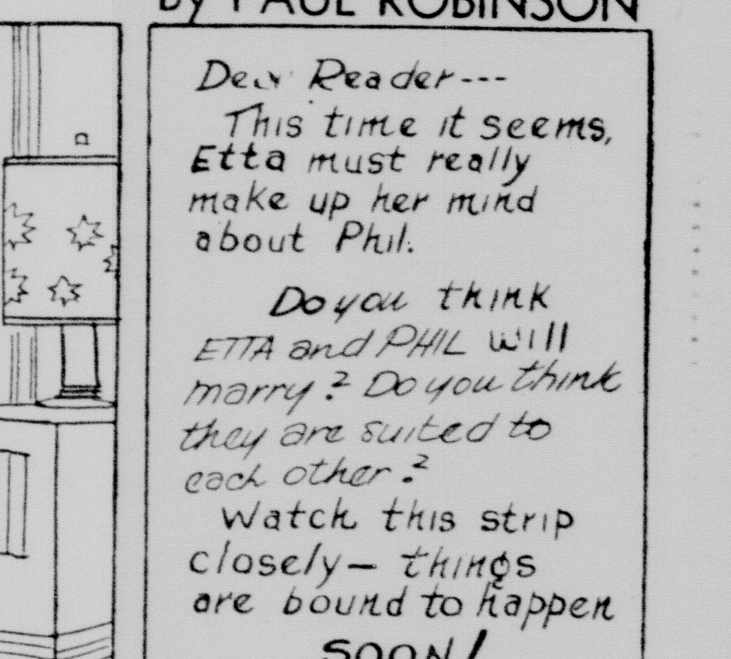 By PAUL ROBINSON
Dear Reader---
This time it seems,
Etta must really
make up her mind
about Phil.
Do you think
ETTA and PHIL will
marry? Do you think
they are suited to
each other?
Watch this strip
closely— things
are bound to happen
SOON!